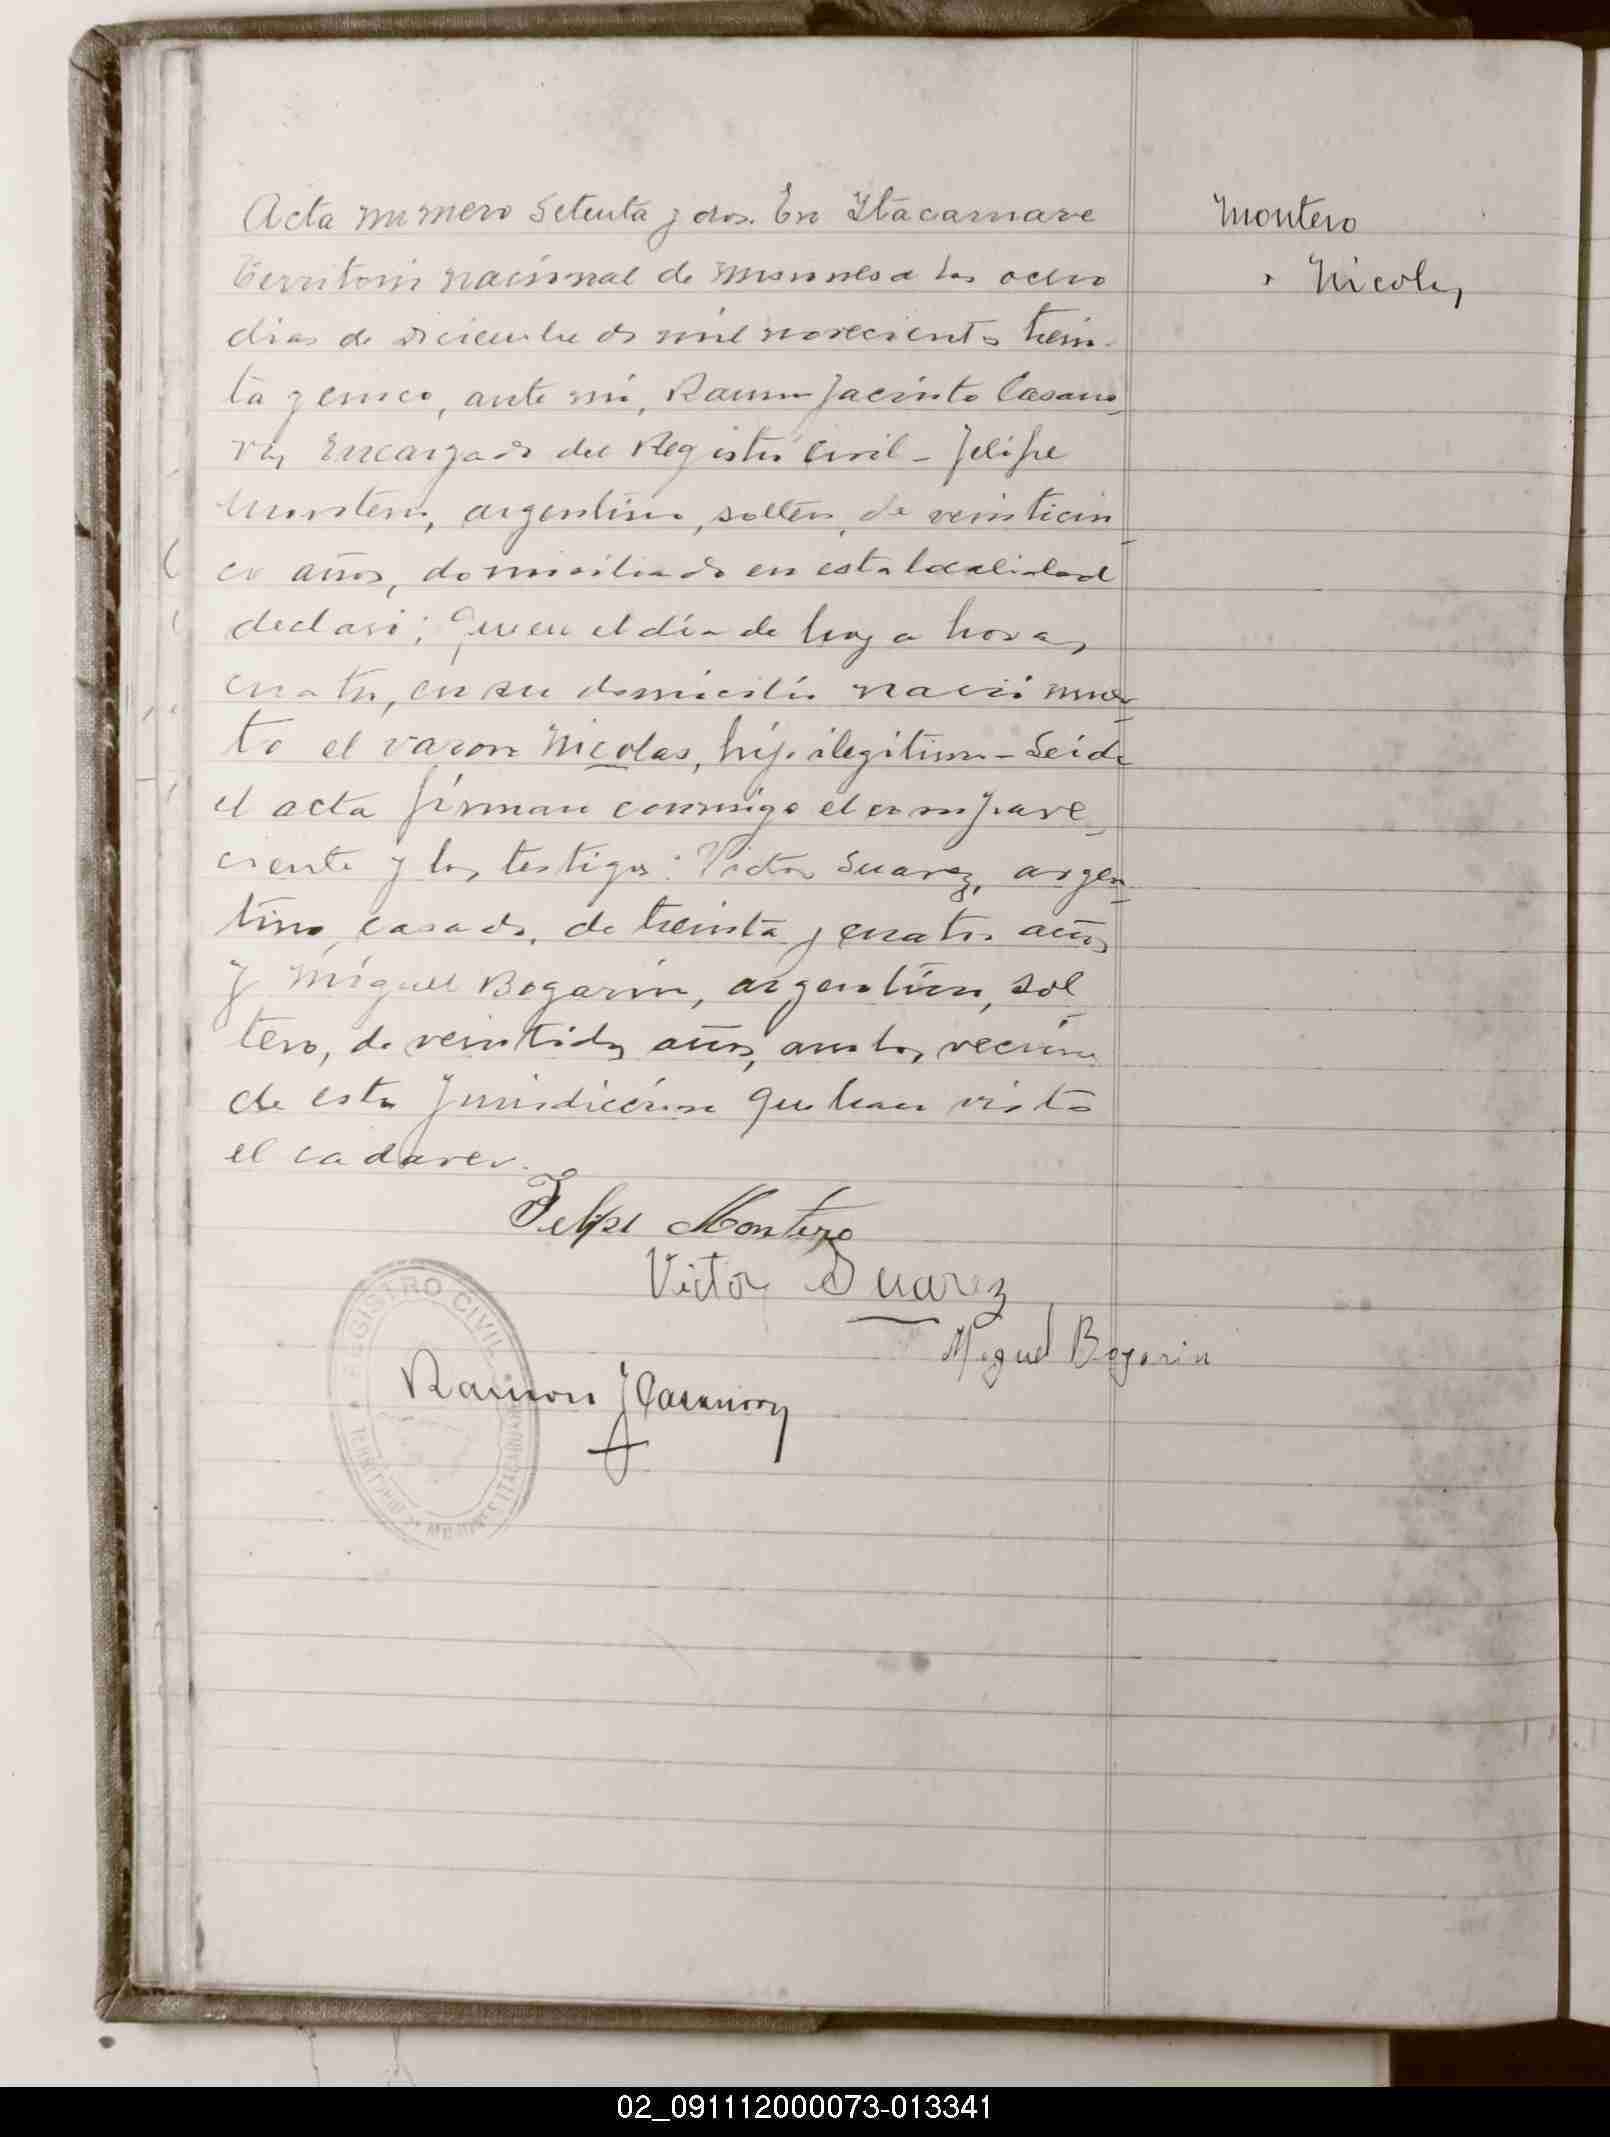 Acta numero Setenta y dos. En Itacaruare
Territorio nacional de Misiones a los ocho
dias de diciembre de mil novecientos trein-
ta y cinco, ante mi, Ramon Jacinto Casano-
va, Encargado del Registro Civil - Felipe
Montero, argentino, soltero, de veinticin-
co años, domiciliado en esta localidad
declaró; Que en el día de hoy a horas
cuatro, en su domicilio nació muer-
to el varon Nicolas, hijo ilegitimo - Leida
el acta firman conmigo el compare-
ciente y los testigos: Victor Suarez, argen-
tino, casado, de treinta y cuatro años
y Miguel Bogarin, argentino, sol-
tero, de veintidos años, ambos vecinos
de esta Jurisdiccion que han visto
el cadaver.
Montero
" Nicolas
Felipe Montero
Victor Suarez
Miguel Bogarin
Ramon J Casanova
REGISTRO CIVIL
TERRITORIO MISIONES ITACARUARE
02_091112000073-013341